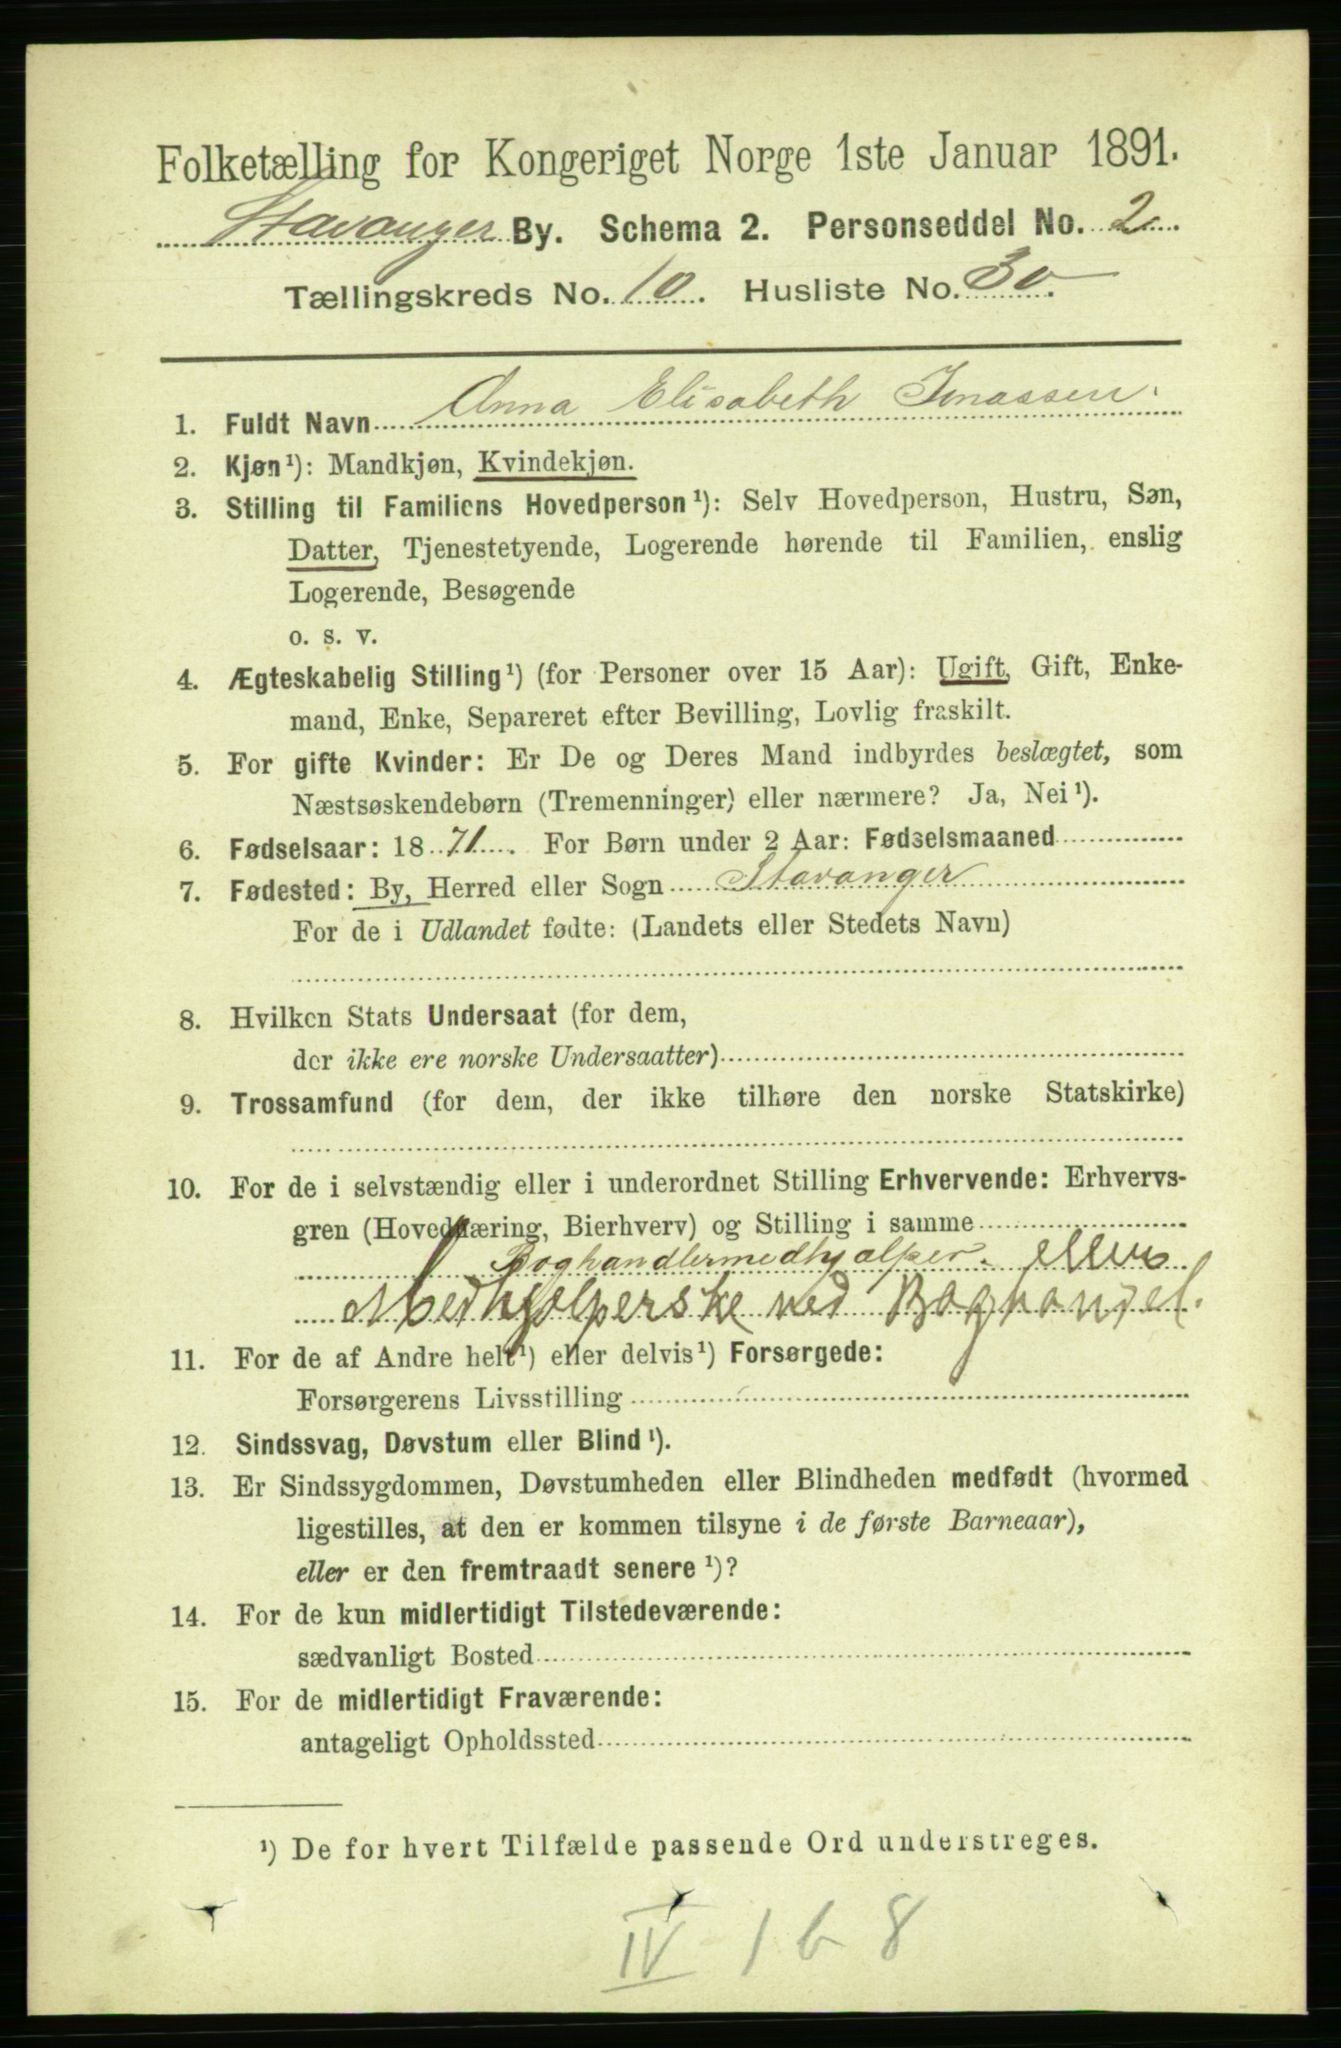 Folketælling for Kongeriget Norge 1ste Januar 1891.
Stavanger By. Schema 2. Personseddel No. 2.
Tællingskreds No. 10. Husliste No. 30.
1. Fuldt Navn Anna Elisabeth Jonassen.
2. Kjøn¹): Mandkjøn, Kvindekjøn.
3. Stilling til Familiens Hovedperson¹): Selv Hovedperson, Hustru, Søn,
Datter, Tjenestetyende, Logerende hørende til Familien, enslig
Logerende, Besøgende
o. s. v.
4. Ægteskabelig Stilling¹) (for Personer over 15 Aar): Ugift, Gift, Enke-
mand, Enke, Separeret efter Bevilling, Lovlig fraskilt.
5. For gifte Kvinder: Er De og Deres Mand indbyrdes beslægtet, som
Næstsøskendebørn (Tremenninger) eller nærmere? Ja, Nei¹).
6. Fødselsaar: 1871. For Børn under 2 Aar: Fødselsmaaned
7. Fødested: By, Herred eller Sogn Stavanger
For de i Udlandet fødte: (Landets eller Stedets Navn)
8. Hvilken Stats Undersaat (for dem,
der ikke ere norske Undersaatter)
9. Trossamfund (for dem, der ikke tilhøre den norske Statskirke)
10. For de i selvstændig eller i underordnet Stilling Erhvervende: Erhvervs-
gren (Hovednæring, Bierhverv) og Stilling i samme
Boghandlermedhjælper. eller
Medhjælperske ved Boghandel.
11. For de af Andre helt¹) eller delvis¹) Forsørgede:
Forsørgerens Livsstilling
12. Sindssvag, Døvstum eller Blind¹).
13. Er Sindssygdommen, Døvstumheden eller Blindheden medfødt (hvormed
ligestilles, at den er kommen tilsyne i de første Barneaar),
eller er den fremtraadt senere¹)?
14. For de kun midlertidigt Tilstedeværende:
sædvanligt Bosted
15. For de midlertidigt Fraværende:
antageligt Opholdssted
¹) De for hvert Tilfælde passende Ord understreges.
IV 1 b 8